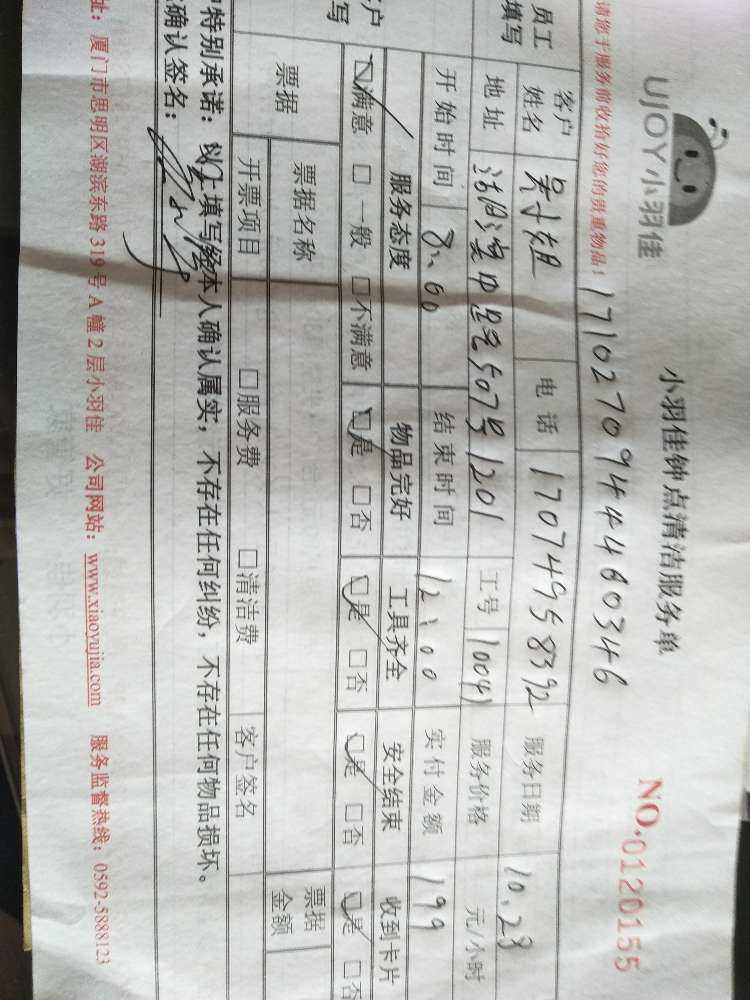 UJOY小羽佳
小羽佳钟点清洁服务单
NO.0120155
请您于服务前收拾好您的贵重物品！
17102709444460346
员工
填写
客户
姓名
吴小姐
电话
17074958392
服务日期
10.28
地址
507号1201
工号
10041
服务价格
元/小时
开始时间
8:00
结束时间
12:00
实付金额
199
客户
写
服务态度
物品完好
工具齐全
安全结束
收到卡片
☑满意 □一般 □不满意
☑是 □否
☑是 □否
☑是 □否
☑是 □否
票据
票据名称
票据
金额
开票项目
□服务费 □清洁费
客户签名
特别承诺：以上填写经本人确认属实，不存在任何纠纷，不存在任何物品损坏。
确认签名：
址：厦门市思明区湖滨东路319号A幢2层小羽佳 公司网站：www.xiaoyujia.com 服务监督热线：0592-5888123